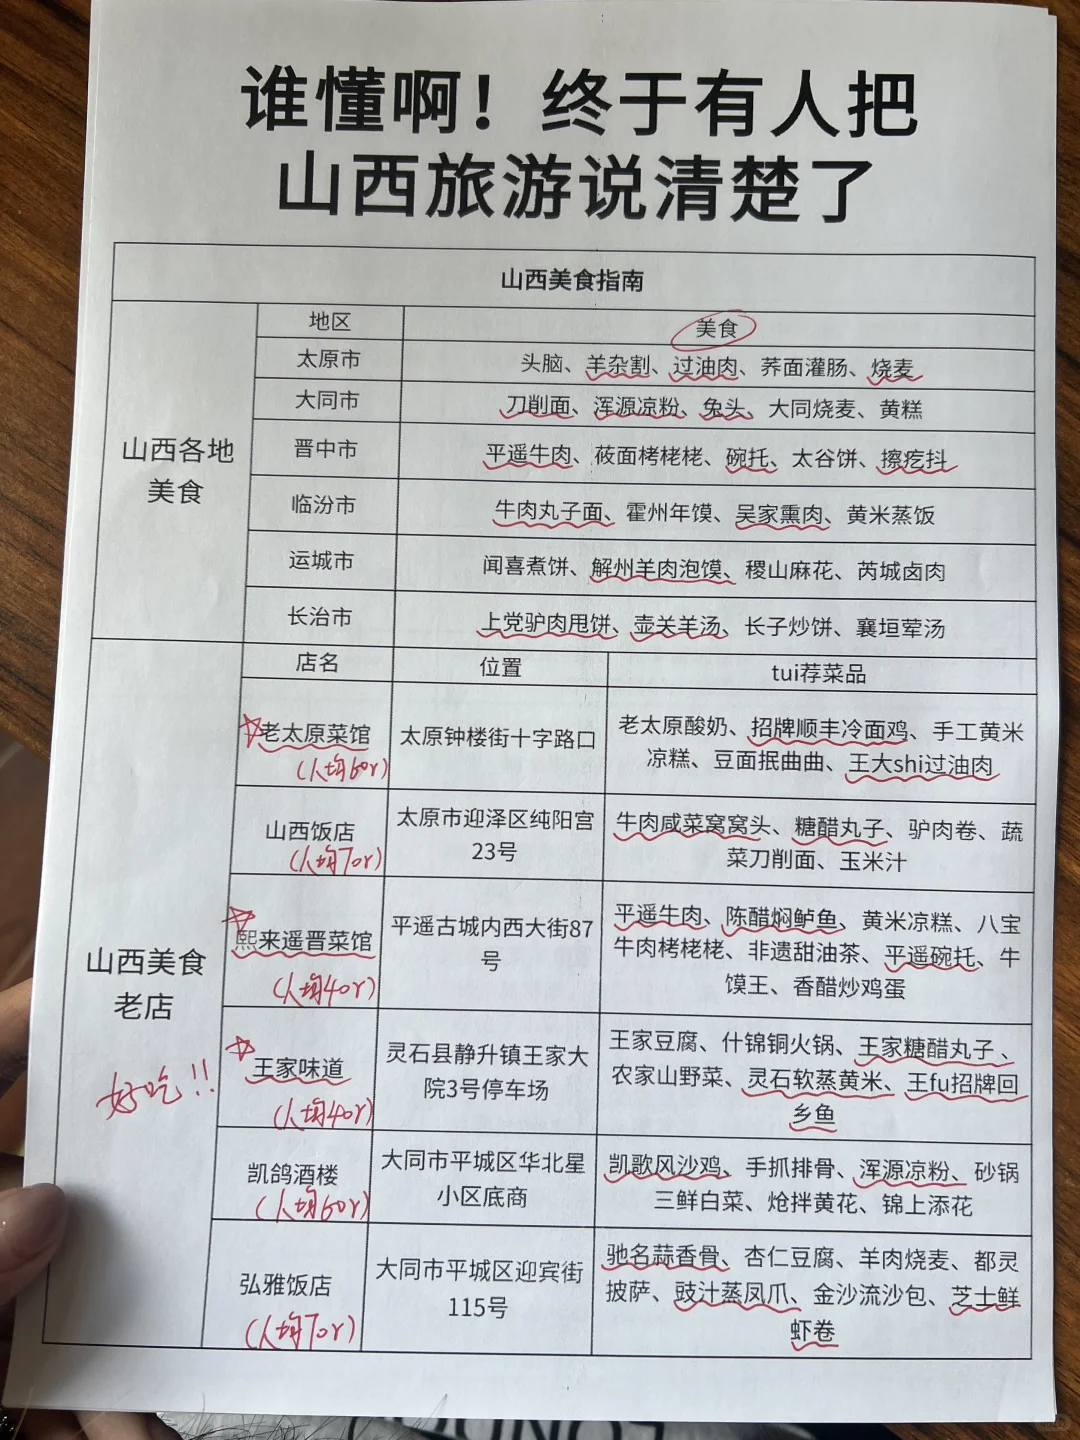 谁懂啊！终于有人把
山西旅游说清楚了
山西美食指南
山西各地
美食
地区
美食
太原市
头脑、羊杂割、过油肉、荞面灌肠、烧麦
大同市
刀削面、浑源凉粉、兔头、大同烧麦、黄糕
晋中市
平遥牛肉、莜面栲栳栳、碗托、太谷饼、擦疙抖
临汾市
牛肉丸子面、霍州年馍、吴家熏肉、黄米蒸饭
运城市
闻喜煮饼、解州羊肉泡馍、稷山麻花、芮城卤肉
长治市
上党驴肉甩饼、壶关羊汤、长子炒饼、襄垣荤汤
山西美食
老店
好吃!!
店名
位置
tui荐菜品
老太原菜馆
(人均60r)
太原钟楼街十字路口
老太原酸奶、招牌顺丰冷面鸡、手工黄米
凉糕、豆面抿曲曲、王大shi过油肉
山西饭店
(人均70r)
太原市迎泽区纯阳宫
23号
牛肉咸菜窝窝头、糖醋丸子、驴肉卷、蔬
菜刀削面、玉米汁
熙来遥晋菜馆
(人均40r)
平遥古城内西大街87
号
平遥牛肉、陈醋焖鲈鱼、黄米凉糕、八宝
牛肉栲栳栳、非遗甜油茶、平遥碗托、牛
馍王、香醋炒鸡蛋
王家味道
(人均40r)
灵石县静升镇王家大
院3号停车场
王家豆腐、什锦铜火锅、王家糖醋丸子、
农家山野菜、灵石软蒸黄米、王fu招牌回
乡鱼
凯鸽酒楼
(人均60r)
大同市平城区华北星
小区底商
凯歌风沙鸡、手抓排骨、浑源凉粉、砂锅
三鲜白菜、炝拌黄花、锦上添花
弘雅饭店
(人均70r)
大同市平城区迎宾街
115号
驰名蒜香骨、杏仁豆腐、羊肉烧麦、都灵
披萨、豉汁蒸凤爪、金沙流沙包、芝士鲜
虾卷